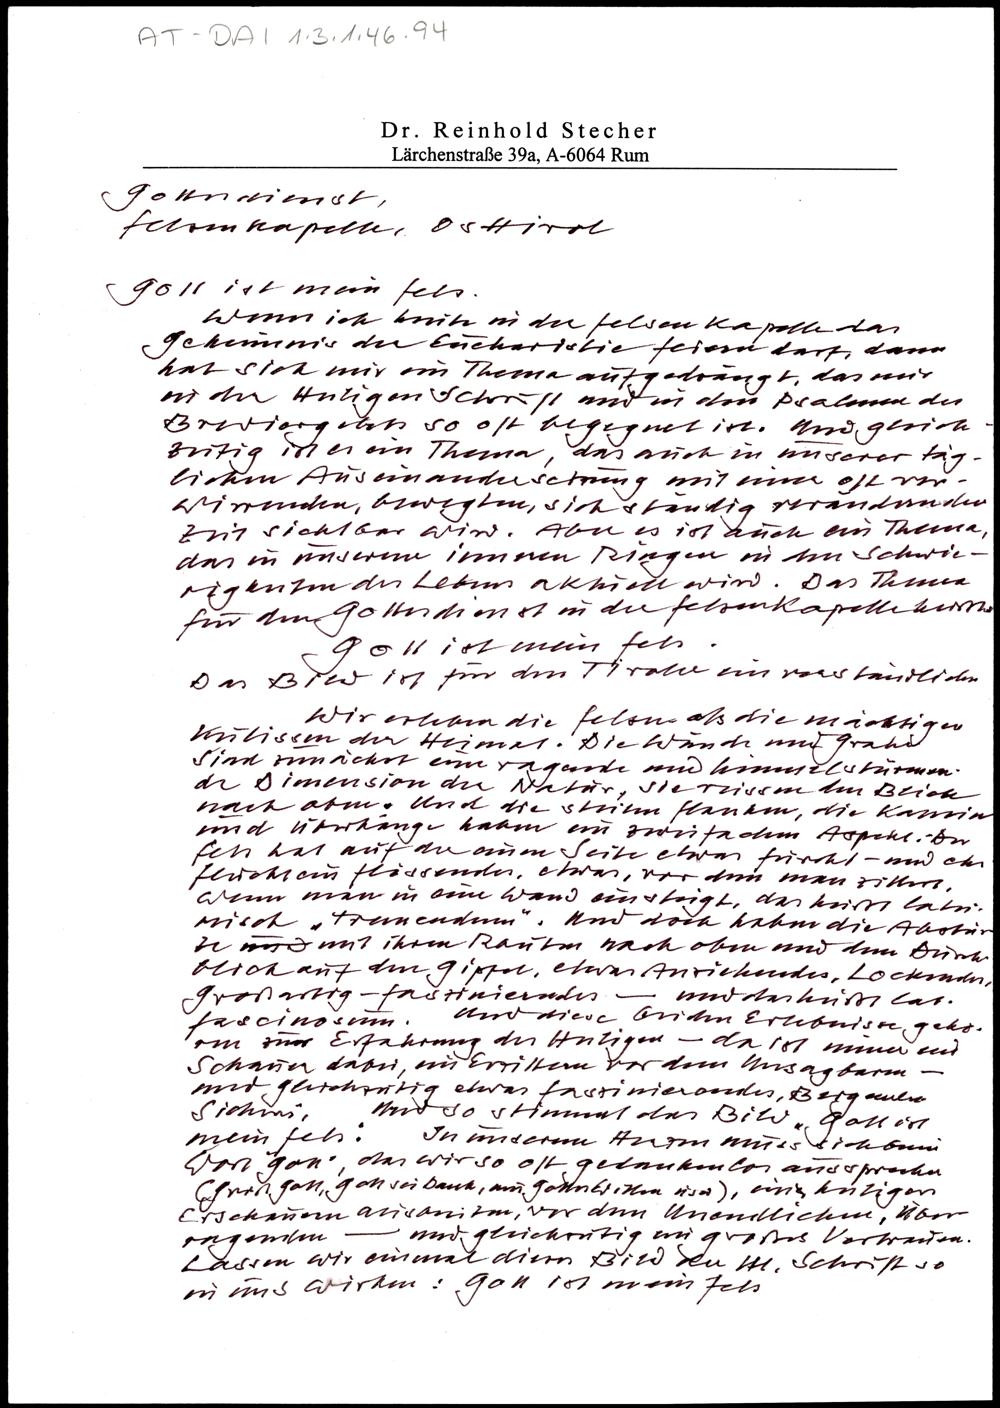 AT-DAI 1.3.1.46.94
Dr. Reinhold Stecher
Lärchenstraße 39a, A-6064 Rum
Gottesdienst,
Felsenkapelle, Osttirol
Gott ist mein Fels.
Wenn ich heute in der Felsenkapelle das
Geheimnis der Eucharistie feiern darf, dann
hat sich mir ein Thema aufgedrängt, das mir
in der Heiligen Schrift und in den Psalmen des
Breviergebets so oft begegnet ist. Und gleich-
zeitig ist es ein Thema, das auch in unserer täg-
lichen Auseinandersetzung mit einer oft ver-
wirrenden, bewegten, sich ständig verändernden
Zeit sichtbar wird. Aber es ist auch ein Thema,
das in unserem inneren Ringen in den Schwie-
rigkeiten des Lebens aktuell wird. Das Thema
für den Gottesdienst in der Felsenkapelle heisst
Gott ist mein Fels.
Das Bild ist für den Tiroler ein verständliches
Wir erleben die Felsen als die mächtigen
Kulissen der Heimat. Die Wände und Grate
sind zunächst eine ragende und himmelstürmen-
de Dimension der Natur, sie reissen den Blick
nach oben. Und die steilen Flanken, die Kamine
und Überhänge haben einen zweifachen Aspekt. Der
Fels hat auf der einen Seite etwas Furcht- und Ehr
furcht einflössendes, etwas, vor dem man zittert,
wenn man in eine Wand einsteigt, das heisst latei-
nisch „tremendum". Und doch haben die Abstür
ze mit ihrem Raum nach oben und dem Durch
blick auf den Gipfel, etwas Anziehendes, Lockendes,
Grossartig-faszinierendes — und das heisst lat.
fascinosum. Und diese beiden Erlebnisse gehö-
ren zur Erfahrung des Heiligen — da ist immer ein
Schauer dabei, ein Erzittern vor dem Unsagbaren —
und gleichzeitig etwas faszinierendes, Bergendes
Sicheres. Und so stimmt das Bild „Gott ist
mein Fels". In unserem Herzen muss sich beim
Wort „Gott", das wir so oft gedankenlos aussprechen
(Grüss Gott, Gott sei Dank, um Gottes Willen usw), ein heiliges
Erschauern ausbreiten, vor dem Unendlichen, Über
ragenden — und gleichzeitig ein grosses Vertrauen.
Lassen wir einmal dieses Bild der Hl. Schrift so
in uns wirken: Gott ist mein Fels